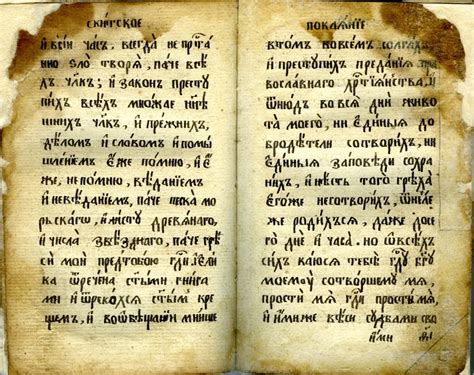 скитское
и всѧк часъ, всегда не преста
нно зло творѧ, паче всѣ
хъ чл҃къ; и законъ престу
пихъ всѣхъ множае нн҃ѣ
шнихъ чл҃къ, и прежнихъ,
дѣломъ и словомъ и помы
шленїемъ еже помню, и е
же, не помню, вѣданїемъ
и невѣданїемъ, паче песка мо
рьскагѡ, и листу древѧнаго,
и числа ѕвѣзднаго, паче грѣ
си мои предтобою гд҃и, ели
ка ѿречена ст҃ыми книга
ми и ѿрекохсѧ ст҃ымъ кре
щемъ, и воѡбѣщанїи
покаѧнїе
втомъ повсѣмъ солгахъ,
и преступихъ преданїѧ пра
вославнаго хрⷭ҇тїѧнства, и
ѿнюд во всѧ дни живо
та моего, ни единыѧ до
бродѣтели сотворихъ, ни
единыѧ заповѣди сохра
нихъ, и нѣсть того грѣха
егоже несотворихъ, ѿнелѣ
же родихсѧ, даже досе
го дне и часа. но ѡвсѣхъ
сихъ каюсѧ тебѣ гд҃у бг҃у
моему сотворшему мѧ,
прости мѧ гд҃и прости мѧ,
и ими же вѣси судбами сво
ими